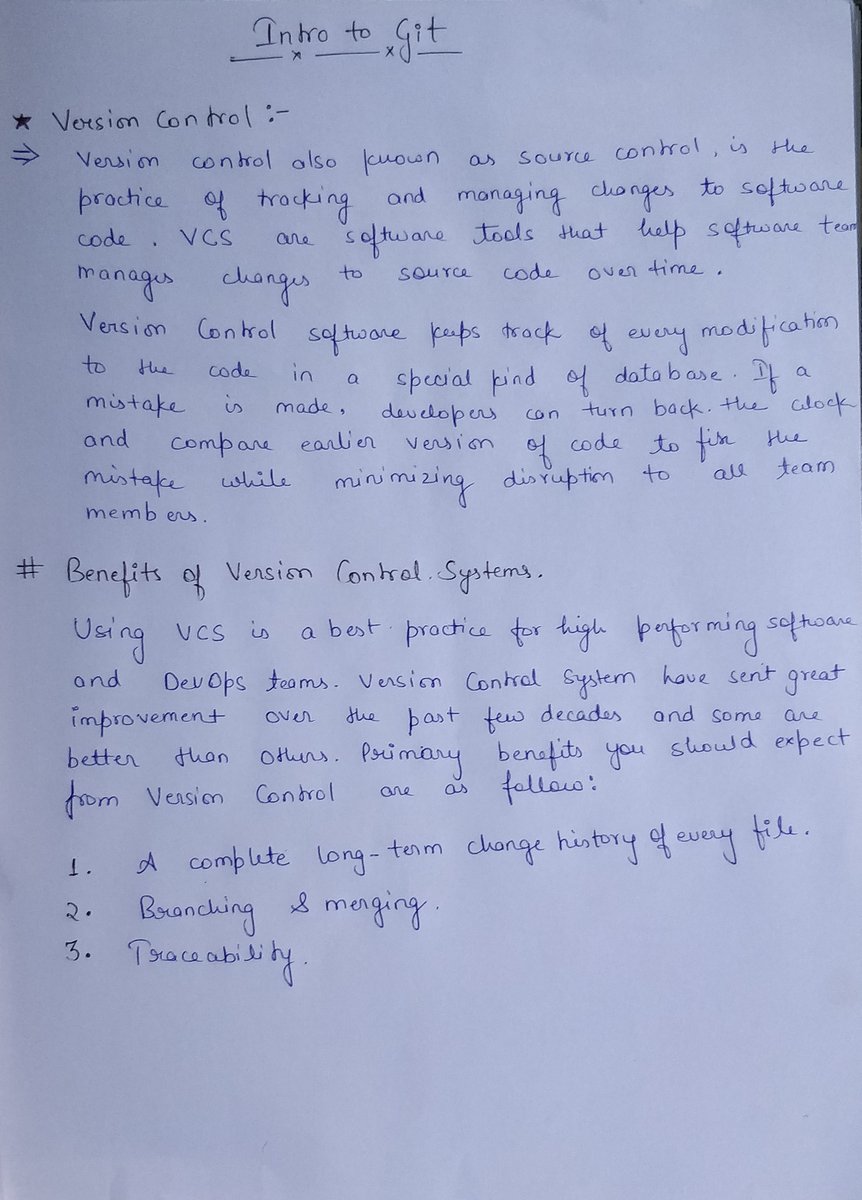 Intro to Git
★ Version Control :-
⇒ Version control also known as source control, is the
practice of tracking and managing changes to software
code. VCS are software tools that help software team
manages changes to source code over time.
Version Control software keeps track of every modification
to the code in a special kind of database. If a
mistake is made, developers can turn back. the clock
and compare earlier version of code to fix the
mistake while minimizing disruption to all team
members.
# Benefits of Version Control. Systems.
Using VCS is a best practice for high performing software
and DevOps teams. Version Control System have sent great
improvement over the past few decades and some are
better than others. Primary benefits you should expect
from Version Control are as follow:
1. A complete long-term change history of every file.
2. Branching & merging.
3. Traceability.